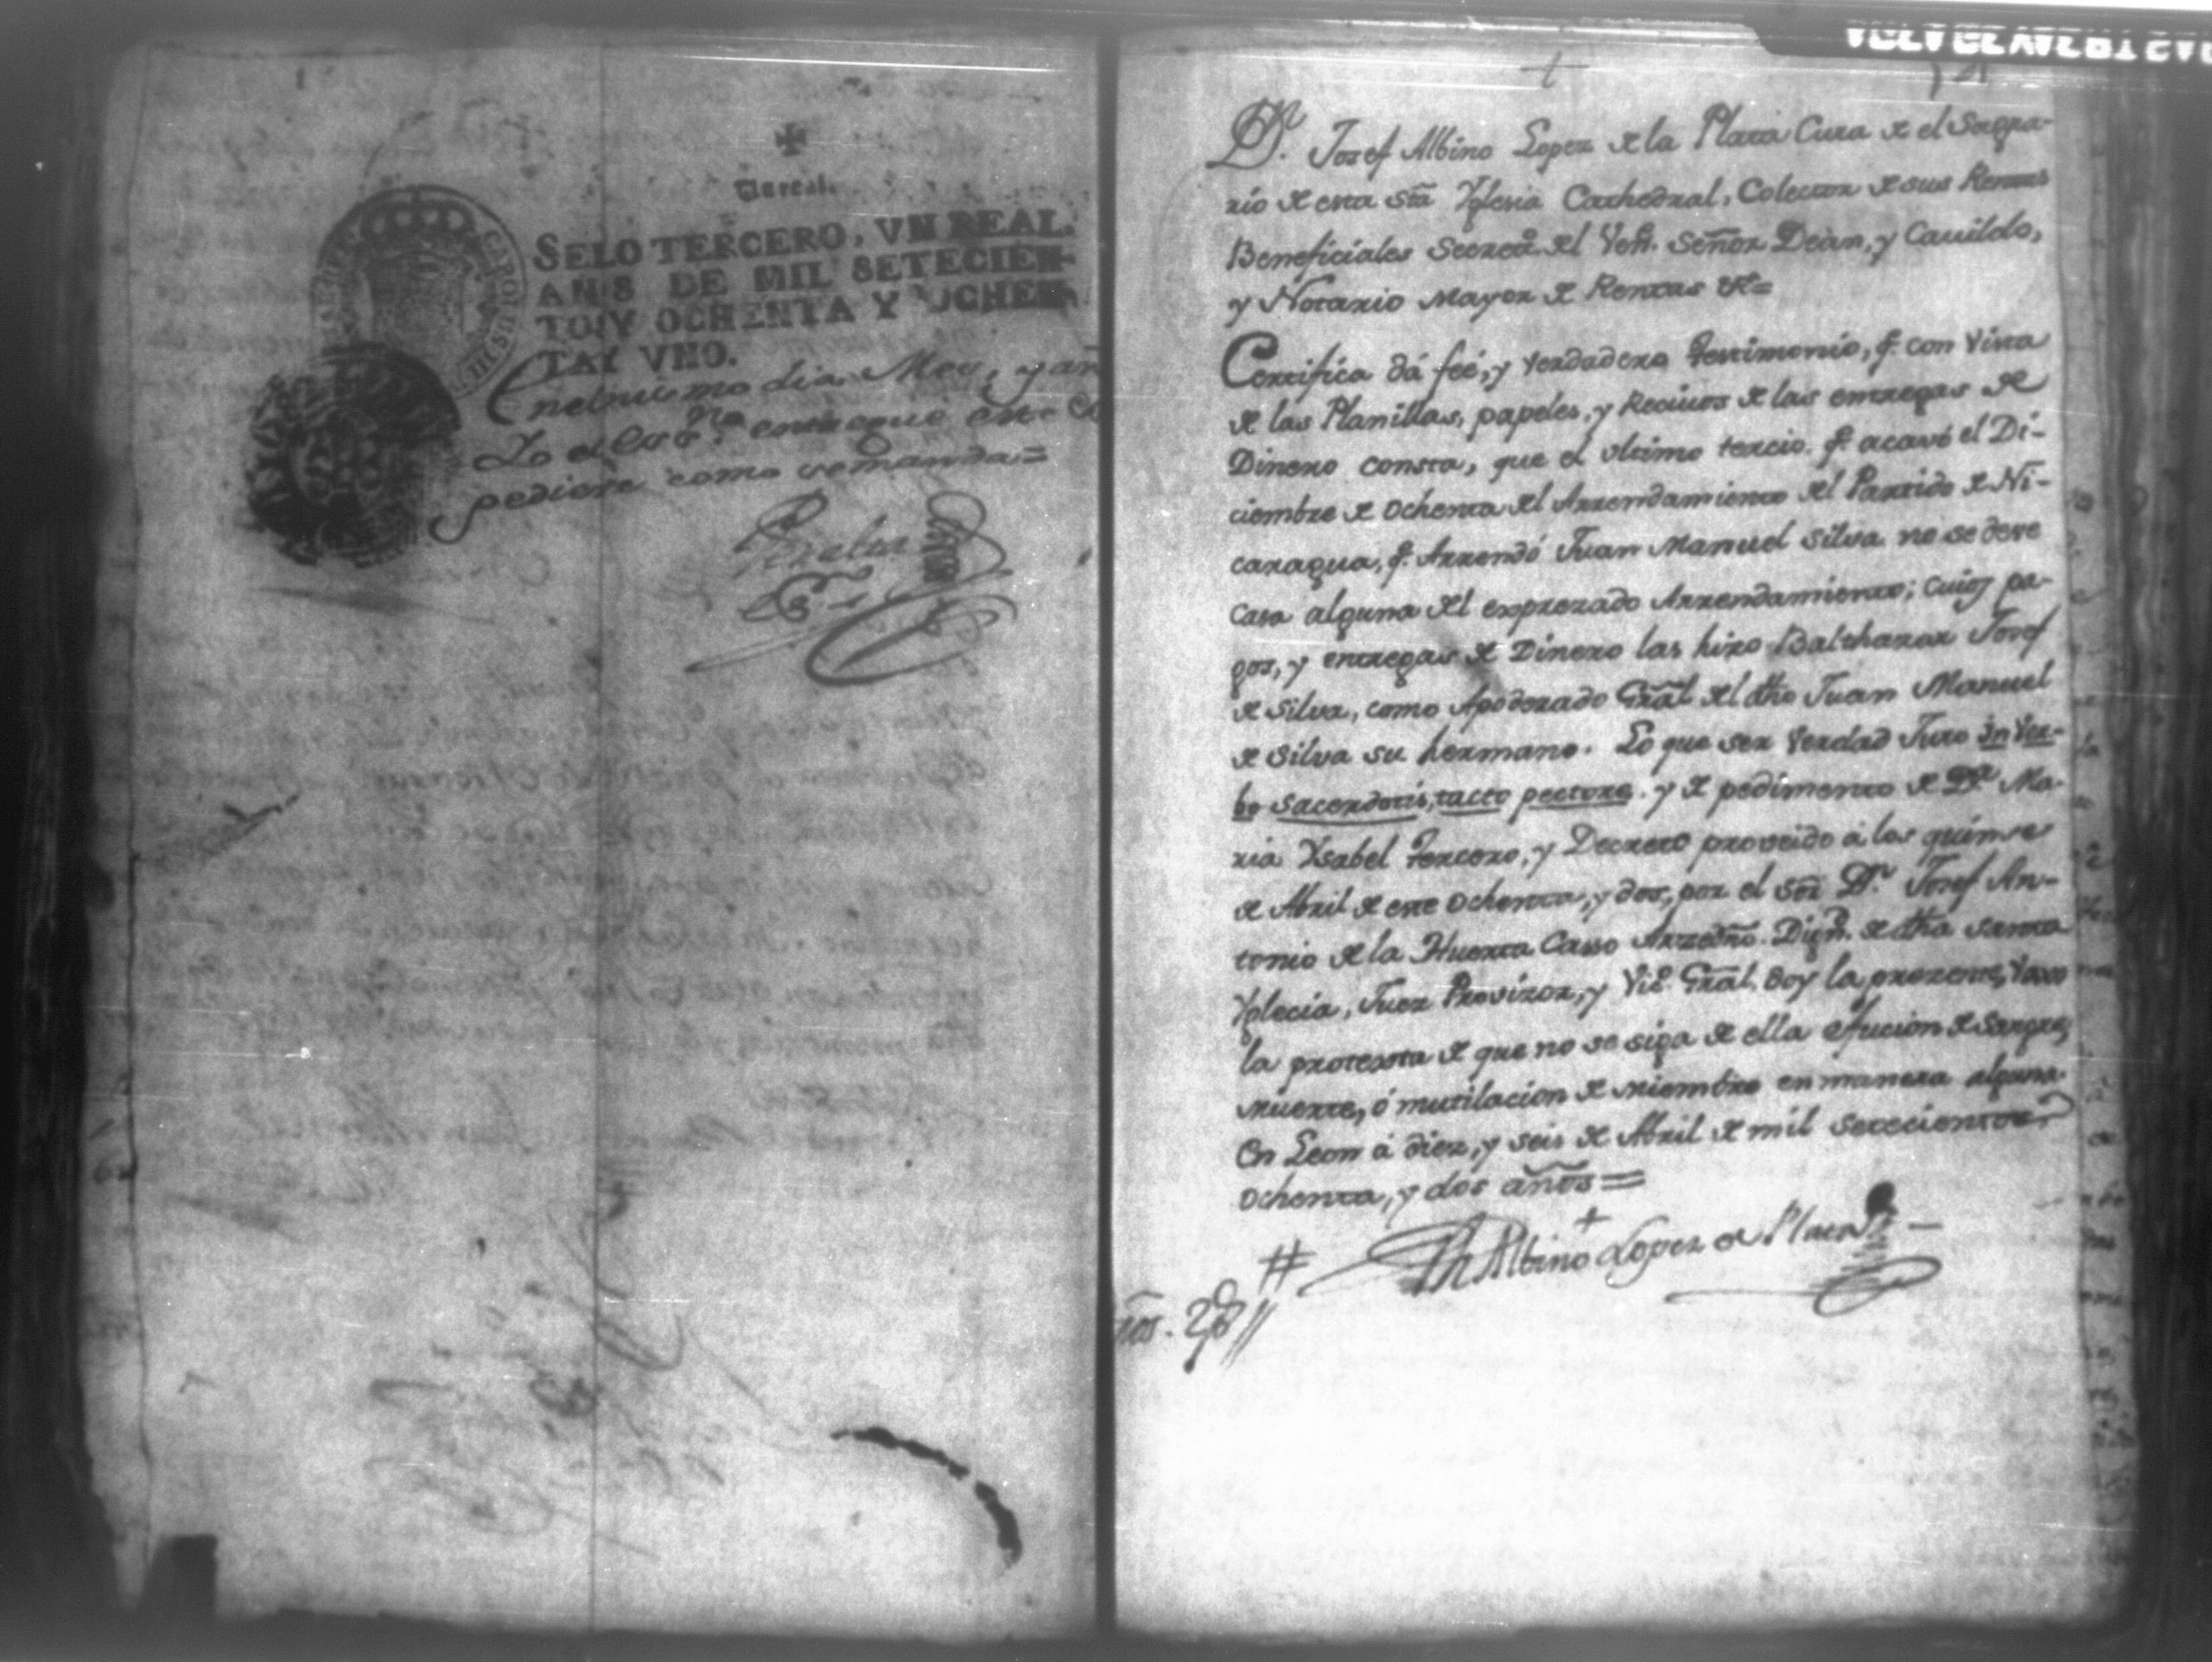 Vn real.
SELO TERCERO, VN REAL,
AÑOS DE MIL SETECIEN-
TOS Y OCHENTA Y OCHEN-
TAY VNO.
En el mismo dia Mes, y añ
Yo el Esс.no entregué este
pediere como se manda=
Peralta
D.n Josef Albino Lopez de la Plata Cura de el Sagra-
rio de esta Sta Yglesia Cathedral, Colector de sus Rentas
Beneficiales Secret.o del Ven. Señor Dean, y Cavildo,
y Notario Mayor de Rentas &=
Certifica dá feé, y verdadero testimonio, q. con vista
de las Planillas, papeles, y Recivos de las entregas de
Dinero consta, que el ultimo tercio q. acavó el Di-
ciembre de ochenta del Arrendamiento del Partido de Ni-
caragua, q. Arrendó Juan Manuel Silva no se deve
Cosa alguna del exprezado Arrendamiento; cuios pa-
gos, y entregas de Dinero las hizo Balthazar Josef
de Silva, como Apoderado Gral. del dho Juan Manuel
de Silva su hermano. Lo que ser verdad Juro in ver-
bo sacerdotis, tacto pectore. y de pedimento de D.a Ma-
ria Ysabel Tercero, y Decreto proveido á los quinse
de Abril de este ochenta, y dos, por el Sor D.n Josef An-
tonio de la Huerta Casso Arzedno. Dign. de dha Santa
Yglecia, Juez Provizor, y Vic. Gral. doy la prezente, vaxo
la protexta de que no se siga de ella efucion de Sangre,
muerte, ó mutilacion de miembro en manera alguna.
En Leon á diez, y seis de Abril de mil setecientos
ochenta, y dos años=
Albino Lopez de la Plata